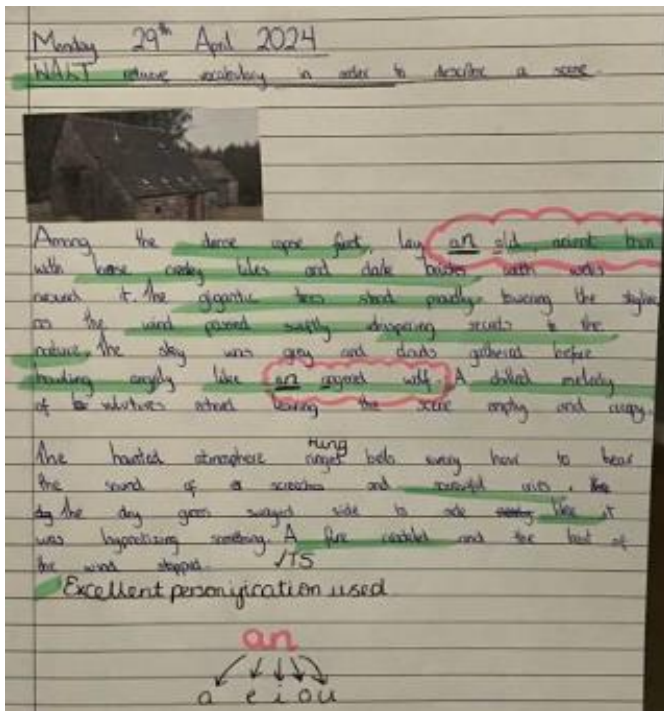 Monday 29th April 2024
WALT retrieve vocabulary in order to describe a scene.
Among the dense forest, lay an old, ancient barn
with loose tiles and dark with
around it. The gigantic trees stand proudly towering the skyline
as the wind passed swiftly whispering secrets to the
nature. The sky was grey and clouds gathered before
howling angrily like an angered wolf. A melody
of leaving the scene empty and creepy.
The haunted atmosphere rung bells every hour to hear
the sound of screeches and
the dry grass swayed side to side like it
was hypnotising something. A fire and the heat of
the wind stopped. ITS
Excellent personification used
an
a e i o u